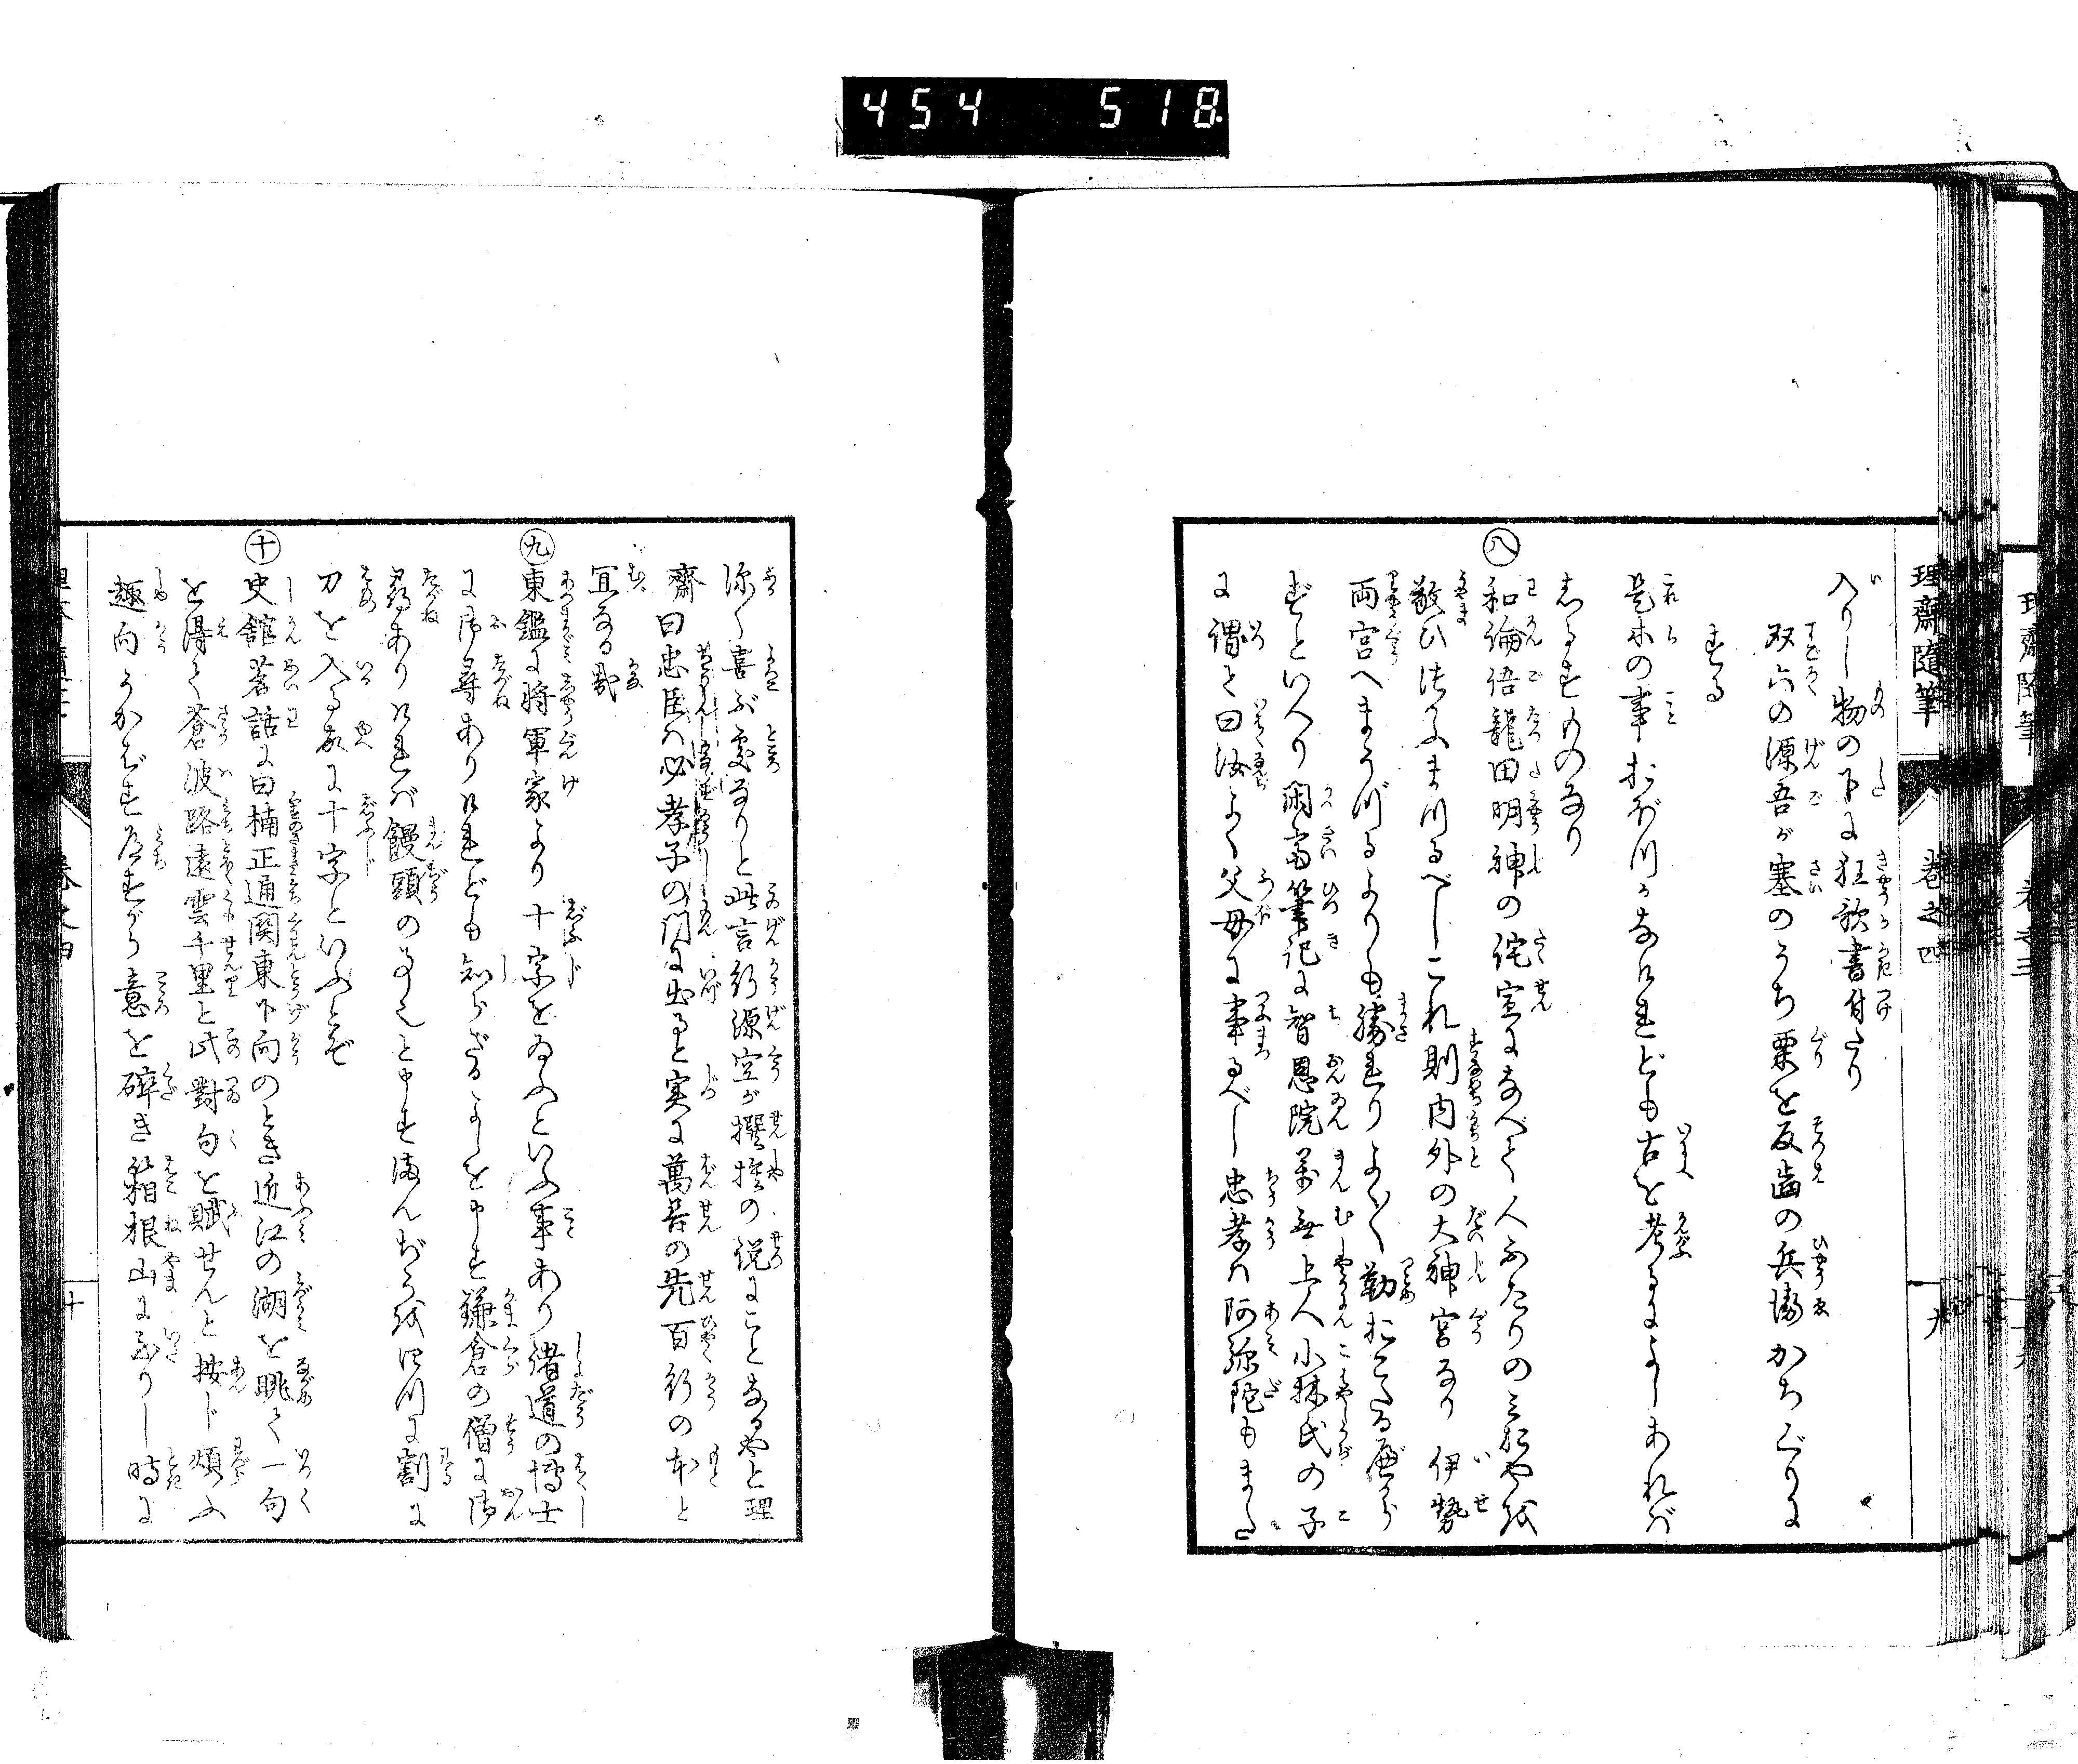 454 518
理齋隨筆 巻之四 九
入りし物の下に狂歌書付たり
双六の源吾が塞のうち栗を反歯の兵衛かちぐりに
する
是等の事おぼつかなけれども古を考るによしあれば
しるすものなり
㊇和論語龍田明神の侘宣になべて人ふたりのおやを
敬ひ法ふまつるべしこれ則内外の大神宮なり伊勢
両宮へまうづるよりも勝れりよく〳〵勤おこたるべから
ずといへり閑斎筆記に智恩院萬無上人小林氏の子
に謂て曰汝よく父母に事るべし忠孝は阿弥陀もまた
深く喜ぶ處なりと此言行源空が撰擇の説にことなるやと理
齋曰忠臣は必孝子の門に出ると実に萬善の先百行の本と
宜なる哉
㊈東鑑に将軍家より十字を給ふといふ事あり諸道の博士
に御尋ありけれども知らざるよしを申す鎌倉の僧に御
尋ありければ饅頭の事也と申すまんぢうを四つに割に
刀を入る故に十字といふとぞ
㊉史舘茗話に曰楠正通関東下向のとき近江の湖を眺て一句
を得て蒼波路遠雲千里と此對句を賦せんと按じ煩ふ
趣向うかばず道すがら意を碎き箱根山に至りし時に